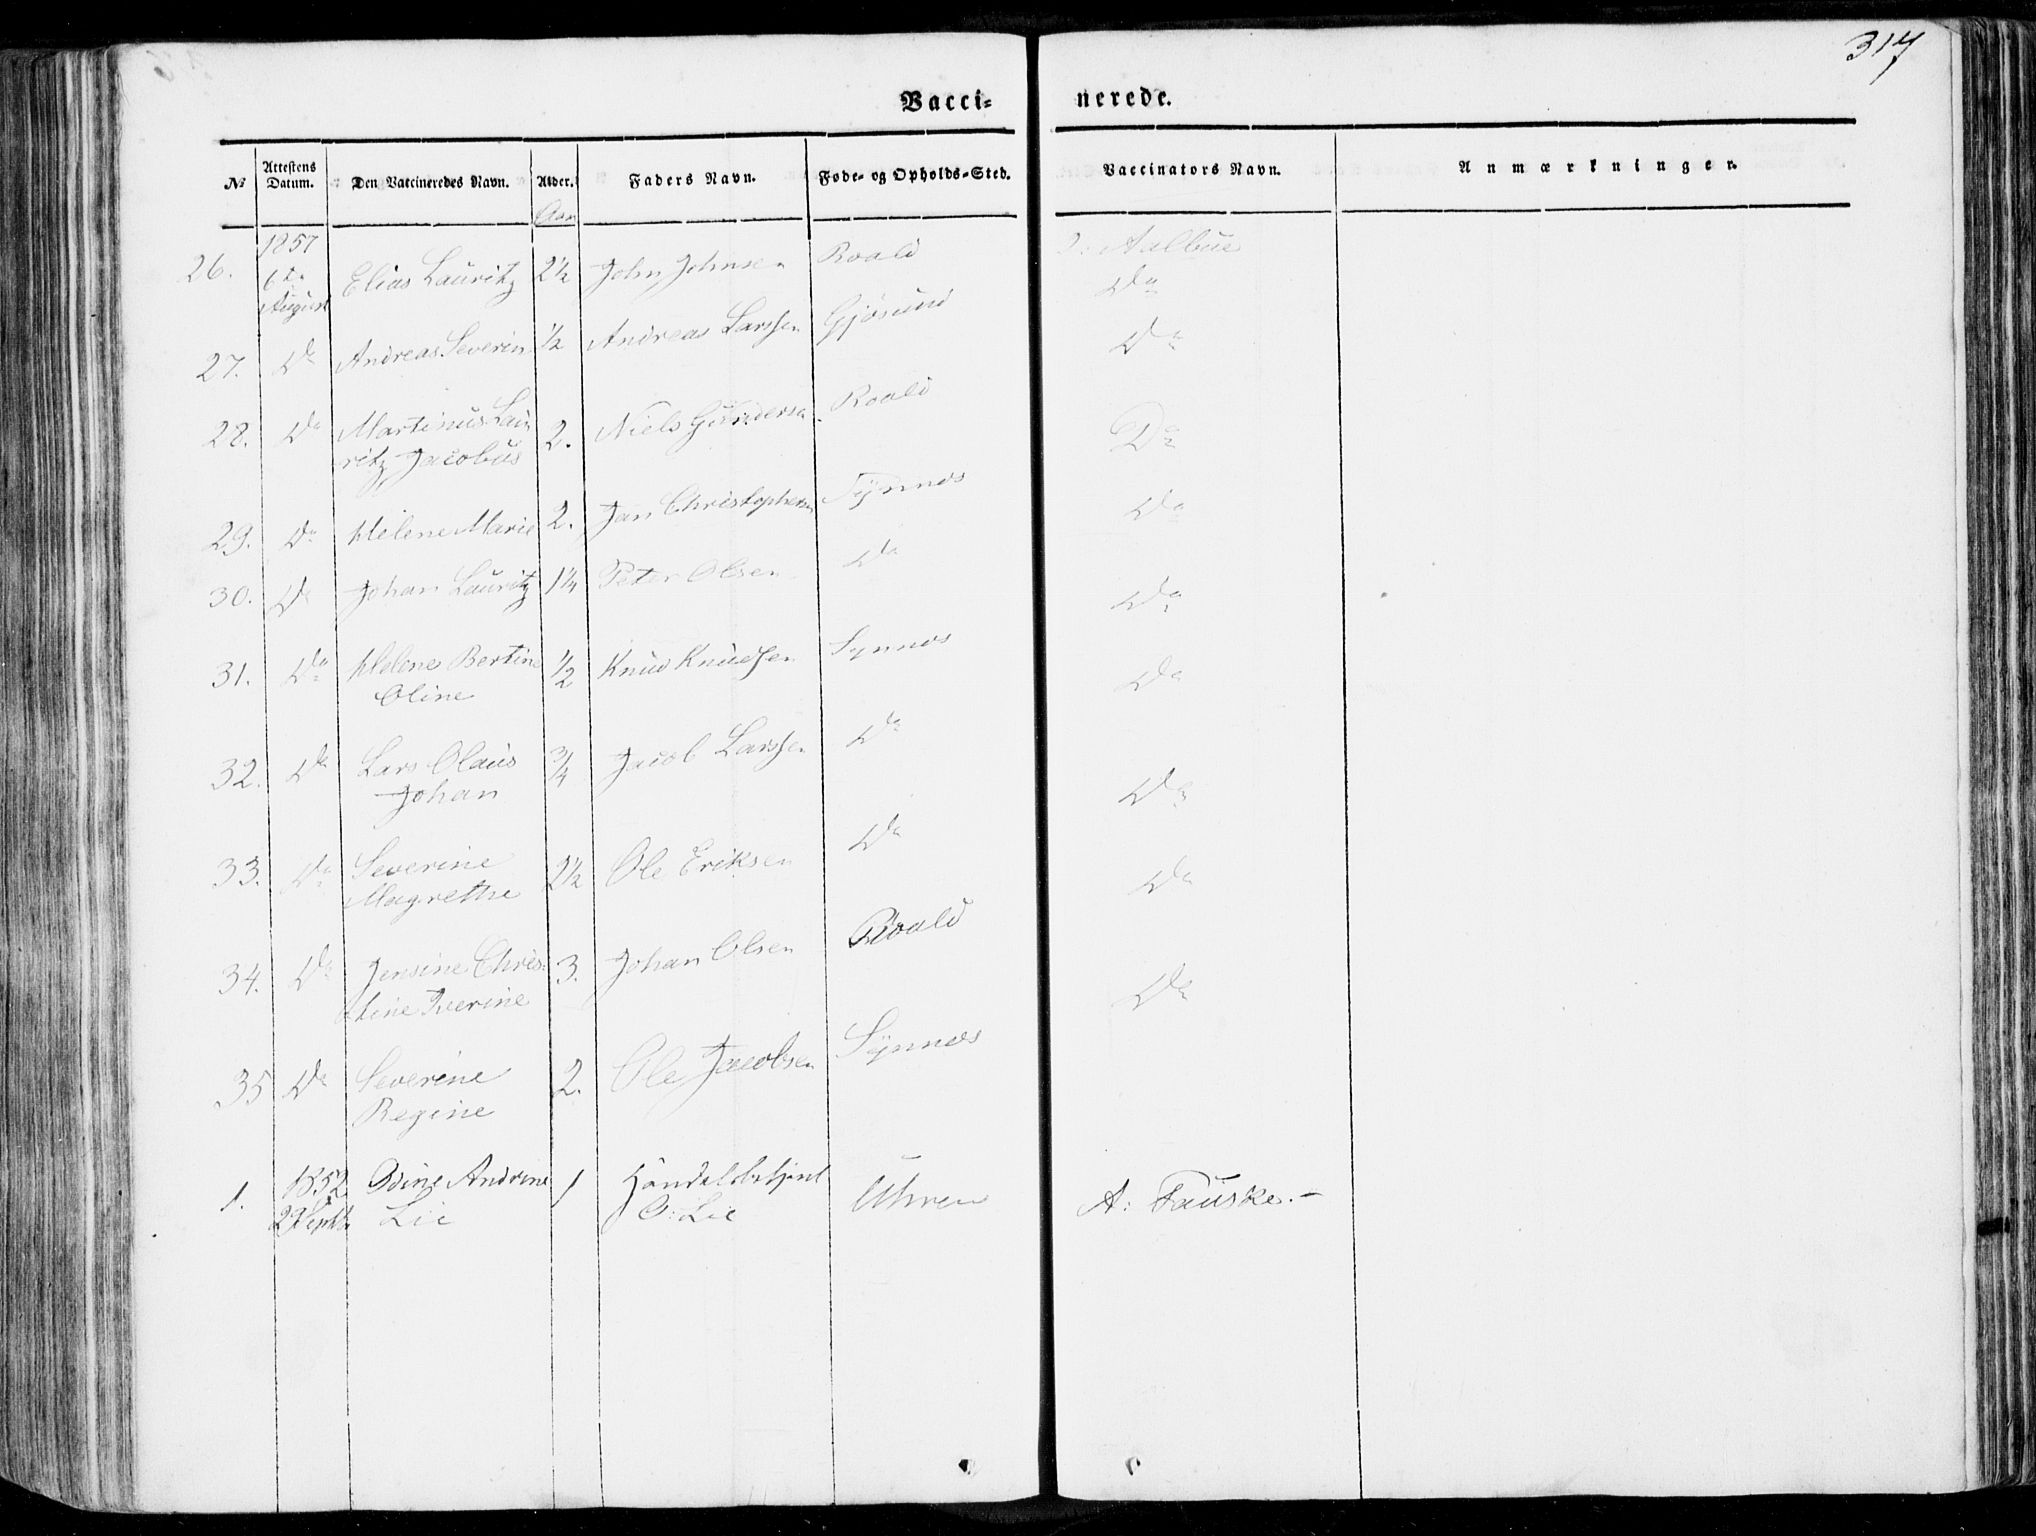 317
Vacci- nerede.
№ Attestens Datum. Den Vaccineredes Navn. Alder. Faders Navn. Føde- og Opholds-Sted. Vaccinators Navn. Anmærkninger.
Aar
26. 1857 6te August Elias Lauritz 2½ John Johnsen Roald Aalbue
Do
27. Do Andreas Severin ½ Andreas Larssen Gjøsund Do
28. Do Martinus Lau
ritz Jacobus 2. Niels Roald Do
29. Do Helene Marie 2. Jan Christophersen Synnes Do
30. Do Johan Lauritz 1¼ Peter Olsen Do Do
31. Do Helene Bertine
Oline ½ Knud Knudsen Synnes Do
32. Do Lars Olaus
Johan ¾ Jacob Larssen Do Do
33. Do Severine
Magrethe 2½ Ole Eriksen Do Do
34. Do Jensine Chris-
tine Iverine 3. Johan Olsen Roald Do
35 Do Severine
Regine 2. Ole Jacobsen Synnes
1. 1852 29 Septb Odine Andrine
Lie 1 Handelsbetjent
O: Lie Uhren A: Fauske.-